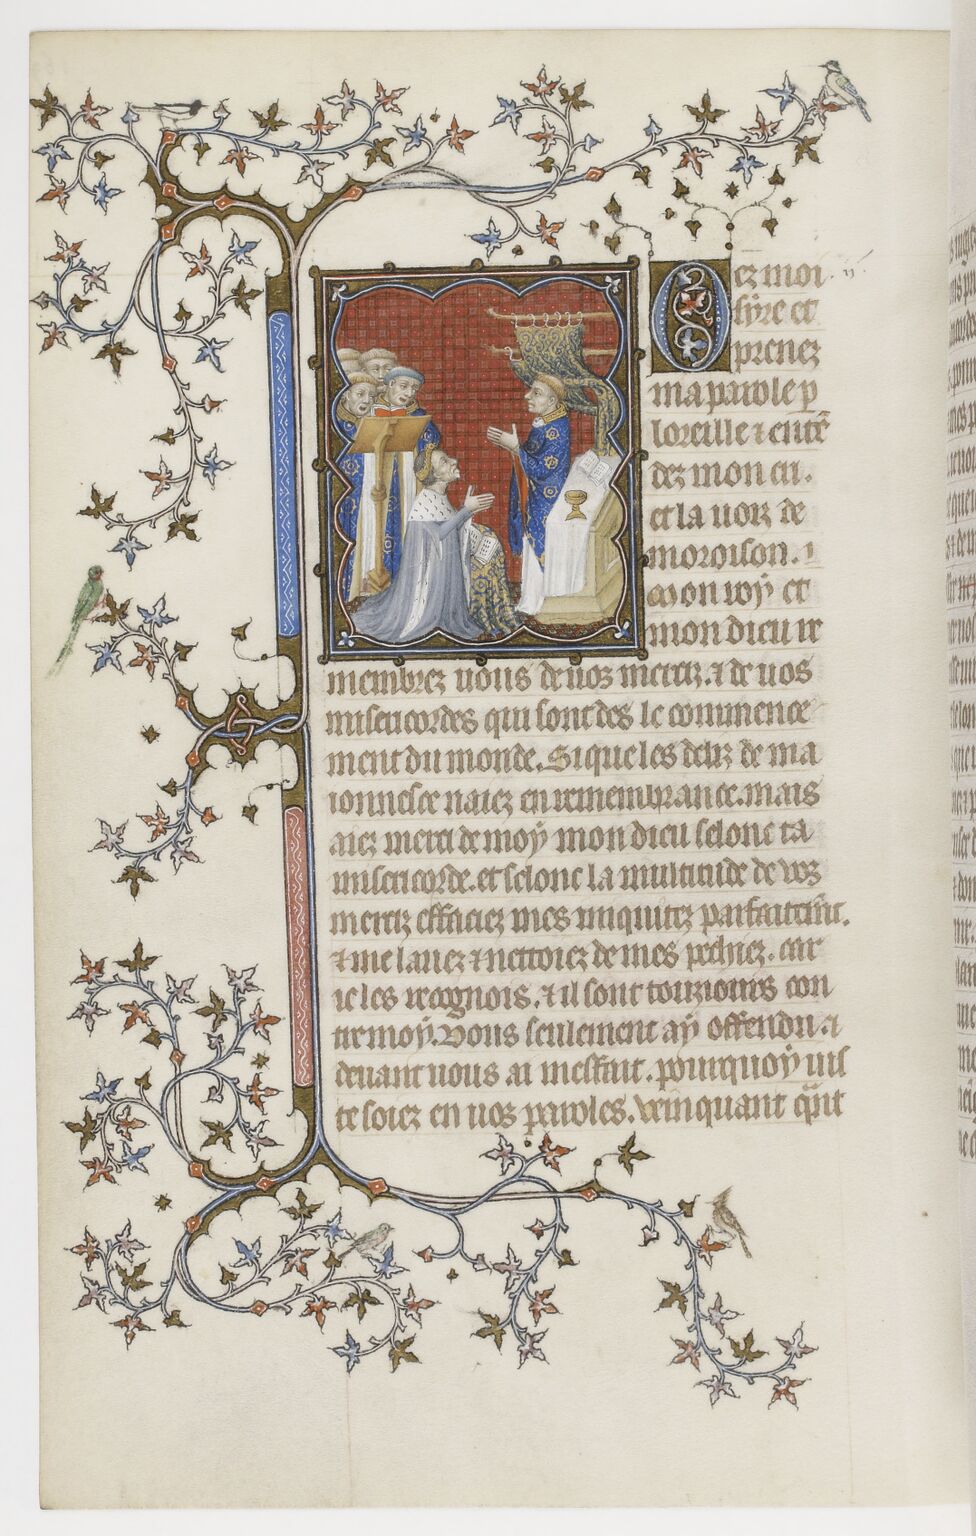 Oez moi
syre et
prenez
ma parole p̱
loreille ⁊ entē
dez mon cri.
et la uoiz de
moroison.
Mon roy et
mon dieu re
membrez uous de uoz merciz. ⁊ de uos
misericordes qui sont des le commence
ment du monde. Si que les deliz de ma
ionnesce naiez en remembrance. mais
aiez merci de moy mon dieu selonc ta
misericorde. et selonc la multitude de voz
merciz effaciez mes iniquitez parfaitem̄t.
⁊ me lauez ⁊ nettoiez de mes pechiez. car
ie les recognois. ⁊ il sont touziours con
tre moy. Vous seulement ay offendu ⁊
deuant uous ai meffait. pourquoy uis
te soiez en uos paroles. veinquant